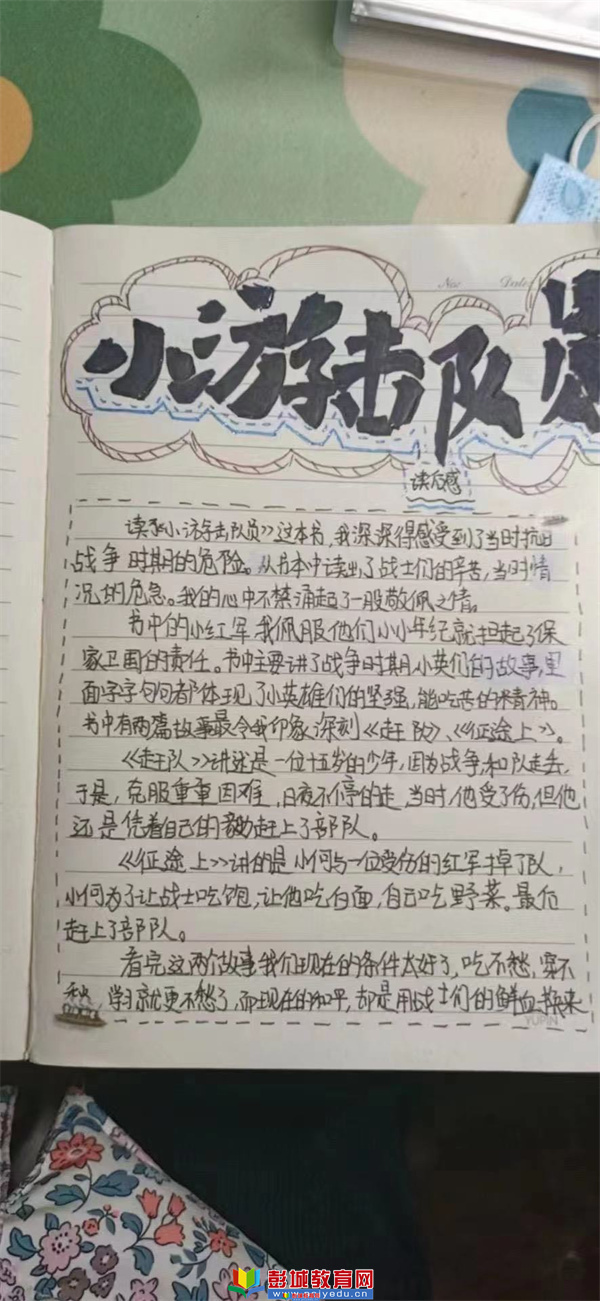 No: Date:
小游击队员
读后感
读了《小游击队员》这本书,我深深得感受到了当时抗日
战争时期的危险。从书本中读出了战士们的辛苦,当时情
况的危急。我的心中不禁涌起了一股敬佩之情。
书中的小红军我佩服他们小小年纪就担起了保
家卫国的责任。书中主要讲了战争时期小英们的故事,里
面字字句句都体现了小英雄们的坚强,能吃苦的精神。
书中有两篇故事最令我印象深刻《赶队》、《征途上》。
《赶队》讲述是一位十五岁的少年,因为战争,和队走丢,
于是,克服重重困难,日夜不停的走,当时,他受了伤,但他
还是凭着自己的努力赶上了部队。
《征途上》讲的是小何与一位受伤的红军掉了队,
小何为了让战士吃饱,让他吃白面,自己吃野菜。最后
赶上了部队。
看完这两个故事我们现在的条件太好了,吃不愁,穿不
愁,学习就更不愁了,而现在的和平,却是用战士们的鲜血换来
YUPIN
彭城教育网